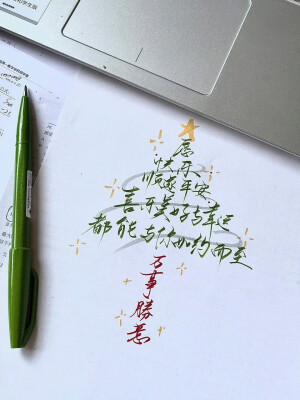 愿
快乐
顺遂平安
喜乐美好与幸运
都能与你如约而至
万事勝意